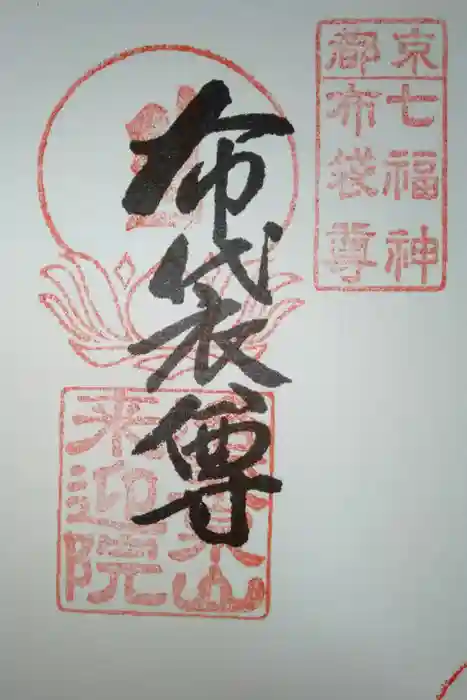 京都
七福神
布袋尊
布袋尊
来迎院